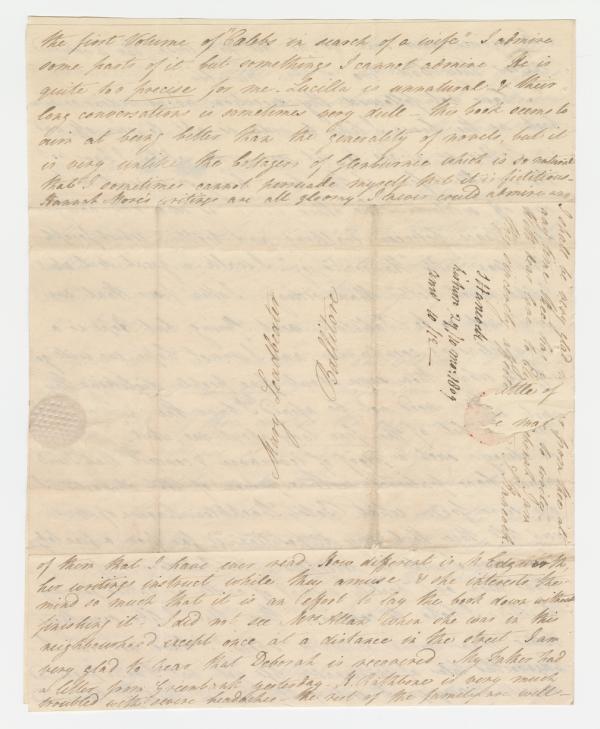 the first Volume of "Cælebs in search of a wife" - I admire
some parts of it but some things I cannot admire. He is
quite too precise for me. Lucilla is unnatural & their
long conversations is sometimes very dull - this book seems to
aim at being better than the generality of novels, but it
is very unlike the Cottagers of Glenburnie which is so natural
that I sometimes cannot persuade myself that it is fictitious.
Hannah More's writings are all gloomy. I never could admire any
I shall be very glad
from thee at
any time
to write
Hancock.
J Hancock
Lisburn 29/10 mo: 1809
ansd 10/12 -
Mary Leadbeater
Ballitore
of them that I have ever read. How different is M. Edgworth,
her writings instruct while they amuse & she interests the
mind so much that it is an effort to lay the book down without
finishing it. I did not see Mrs Allan when she was in this
neighbourhood except once at a distance in the street. I am
very glad to hear that Deborah is recovered. My Father had
a letter from Greenbank yesterday. R. Rathbone is very much
troubled with severe headaches - the rest of the family are well -